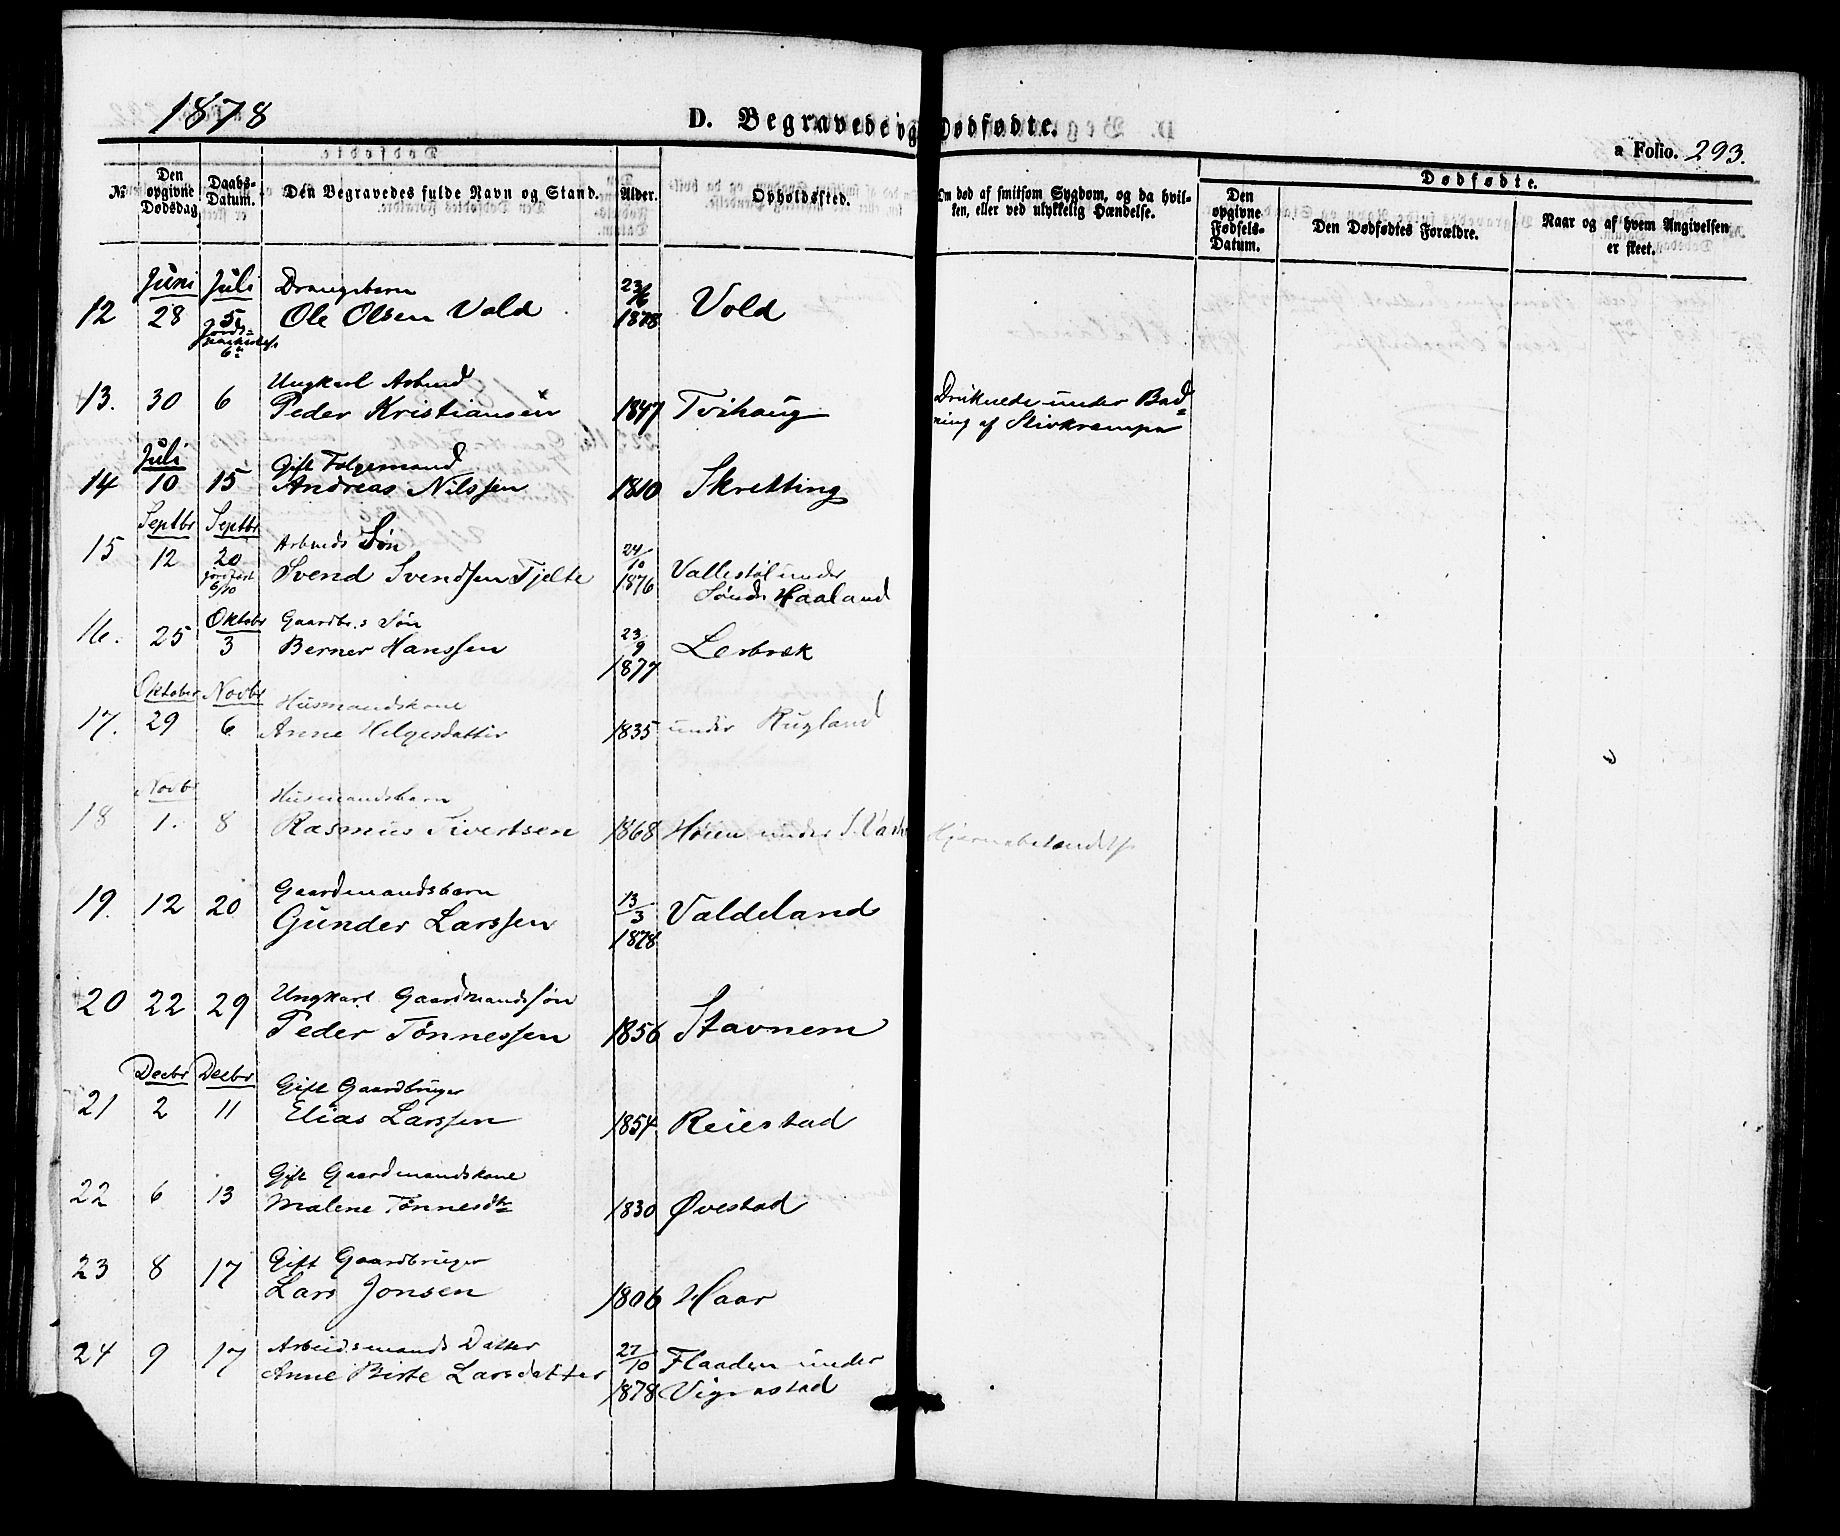 1878
D. Begravede og Dødfødte.
a Folio. 293.
No
Den opgivne Dødsdag
Daabs-Datum.
Den Begravedes fulde Navn og Stand.
Alder.
Opholdssted.
Om død af smitsom Sygdom, og da hvil-
ken, eller ved ulykkelig Hændelse.
Dødfødte.
Den opgivne Fødsels-Datum.
Den Dødfødtes Forældre.
Naar og af hvem Angivelsen
er skeet.
Juni Juli Drangebarn 23/6
12 28 5 Ole Olsen Vold 1878 Vold
6te
Ungkarl Arbmd
13. 30 6 Peder Kristiansen 1847 Tvihaug Druknede under Bad=
ning af Stivkrampe
Juli Gift Følgemand
14 10 15 Andreas Nilssen 1810 Skretting
Septbr Septbr Arbmds Søn 24/10
15 12 20 Svend Svendsen Tjelte 1876 Vallestøl under
jordfæst 6/10 Søndr Haaland
Oktobr Gaardbr.s Søn 23/9
16. 25 3 Berner Hanssen 1877 Lerbrek
Oktober Novbr Husmandskone
17. 29 6 Anne Helgesdatter 1835 under Rugland
Novbr Husmandsbarn
18 1. 8 Rasmus Sivertsen 1868 Høien under S. Varh Hjernebetændelse
Gaardmandsbarn 13/3
19. 12 20 Gunder Larssen 1878 Valdeland
Ungkarl Gaardmandssøn
20 22 29 Peder Tønnessen 1856 Stavnem
Decbr Decbr Gift Gaardbruger
21 2 11 Elias Larssen 1854 Reiestad
Gift Gaardmandskone
22 6 13 Malene Tønnesdtr 1830 Øvestad
Gift Gaardbruger
23 8 17 Lars Jonsen 1806 Haar
Arbeidsmands Datter 27/10
24 9 17 Anne Birte Larsdatter 1878 Flaaden under
Vigrestad